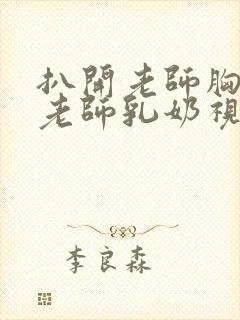 扒開老師胸
老師乳奶視
李良森